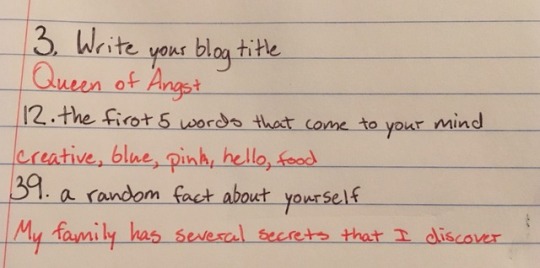 3. Write your blog title
Queen of Angst
12. the first 5 words that come to your mind
creative, blue, pink, hello, food
39. a random fact about yourself
My family has several secrets that I discover